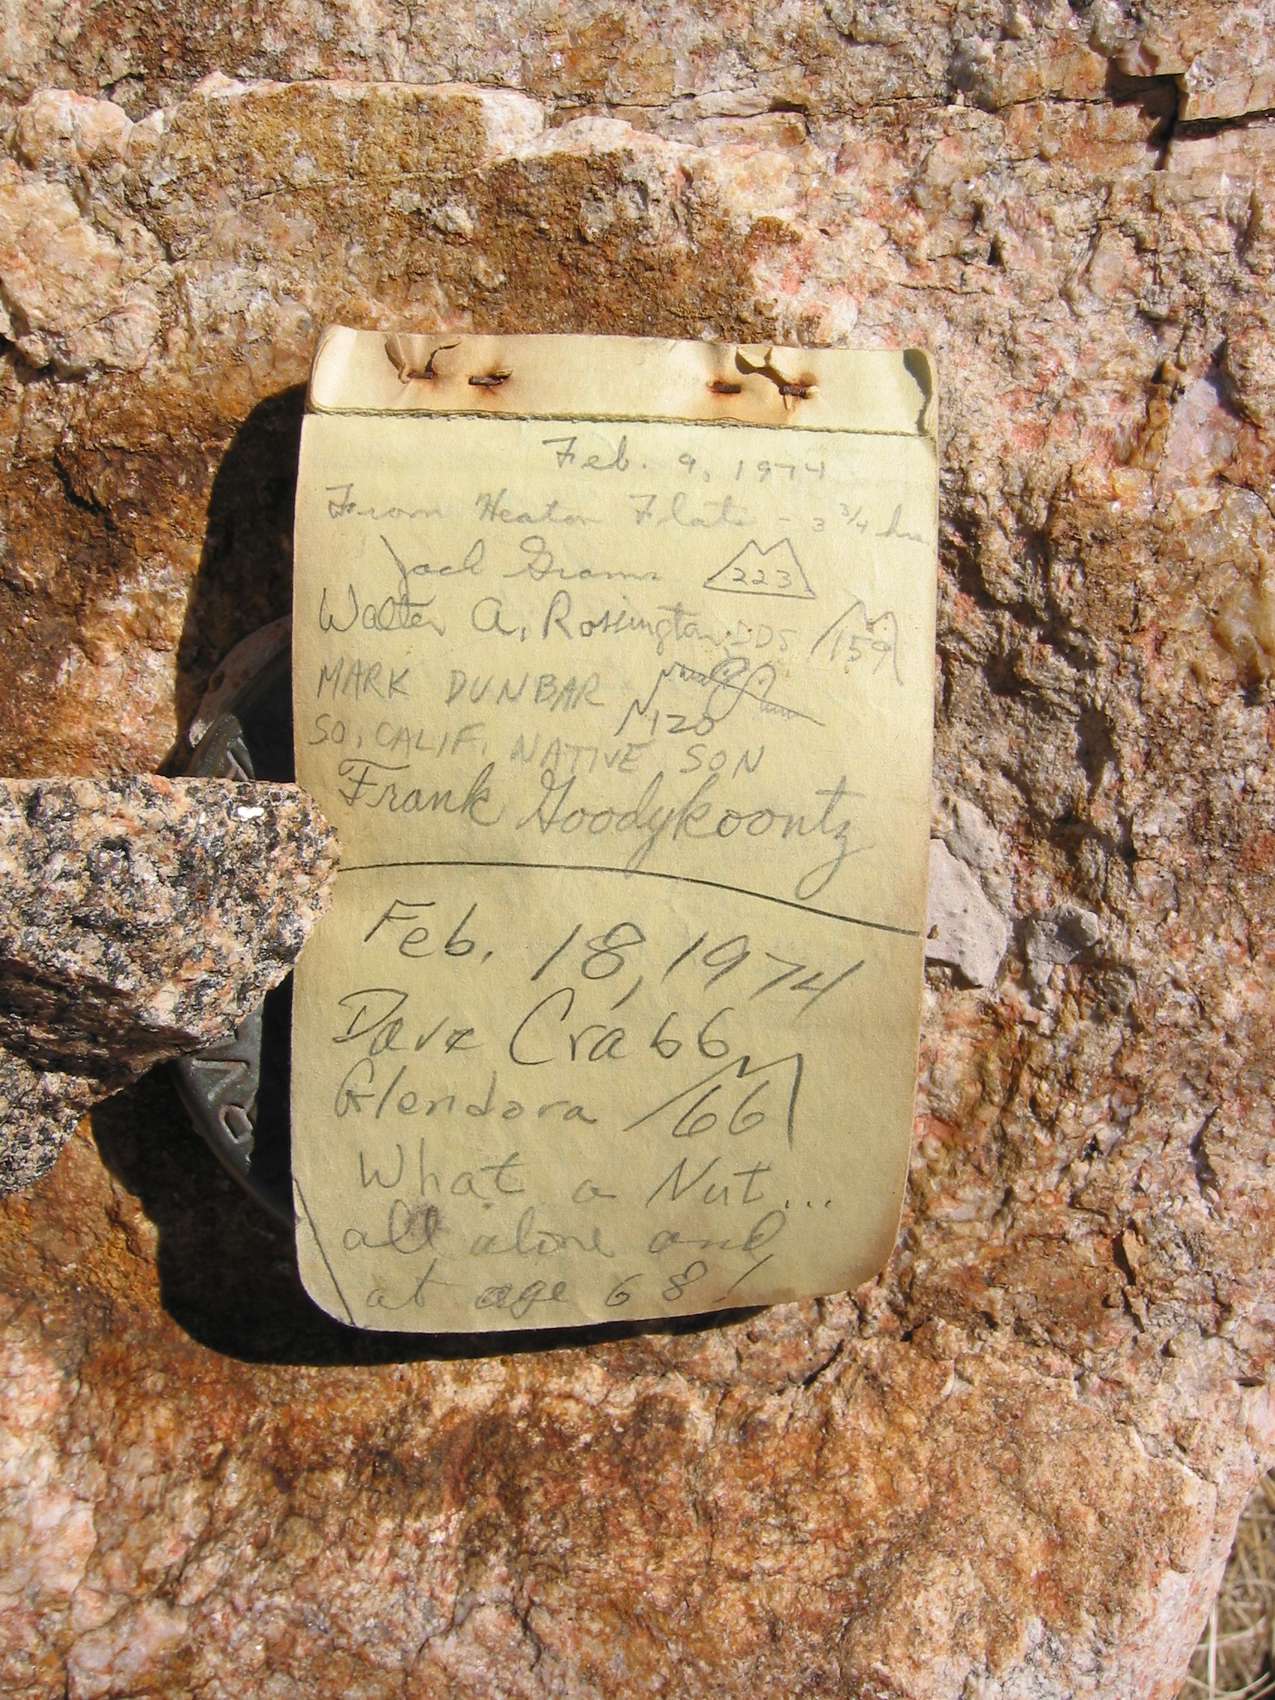 Feb. 9, 1974
From Heaton Flats - 3 3/4 hrs.
Jack Grams 223
Walter A. Rossington DDS 159
MARK DUNBAR
120
SO. CALIF. NATIVE SON
Frank Goodykoontz
Feb. 18, 1974
Dave Crabb
Glendora 66
What a Nut...
all alone and
at age 68!